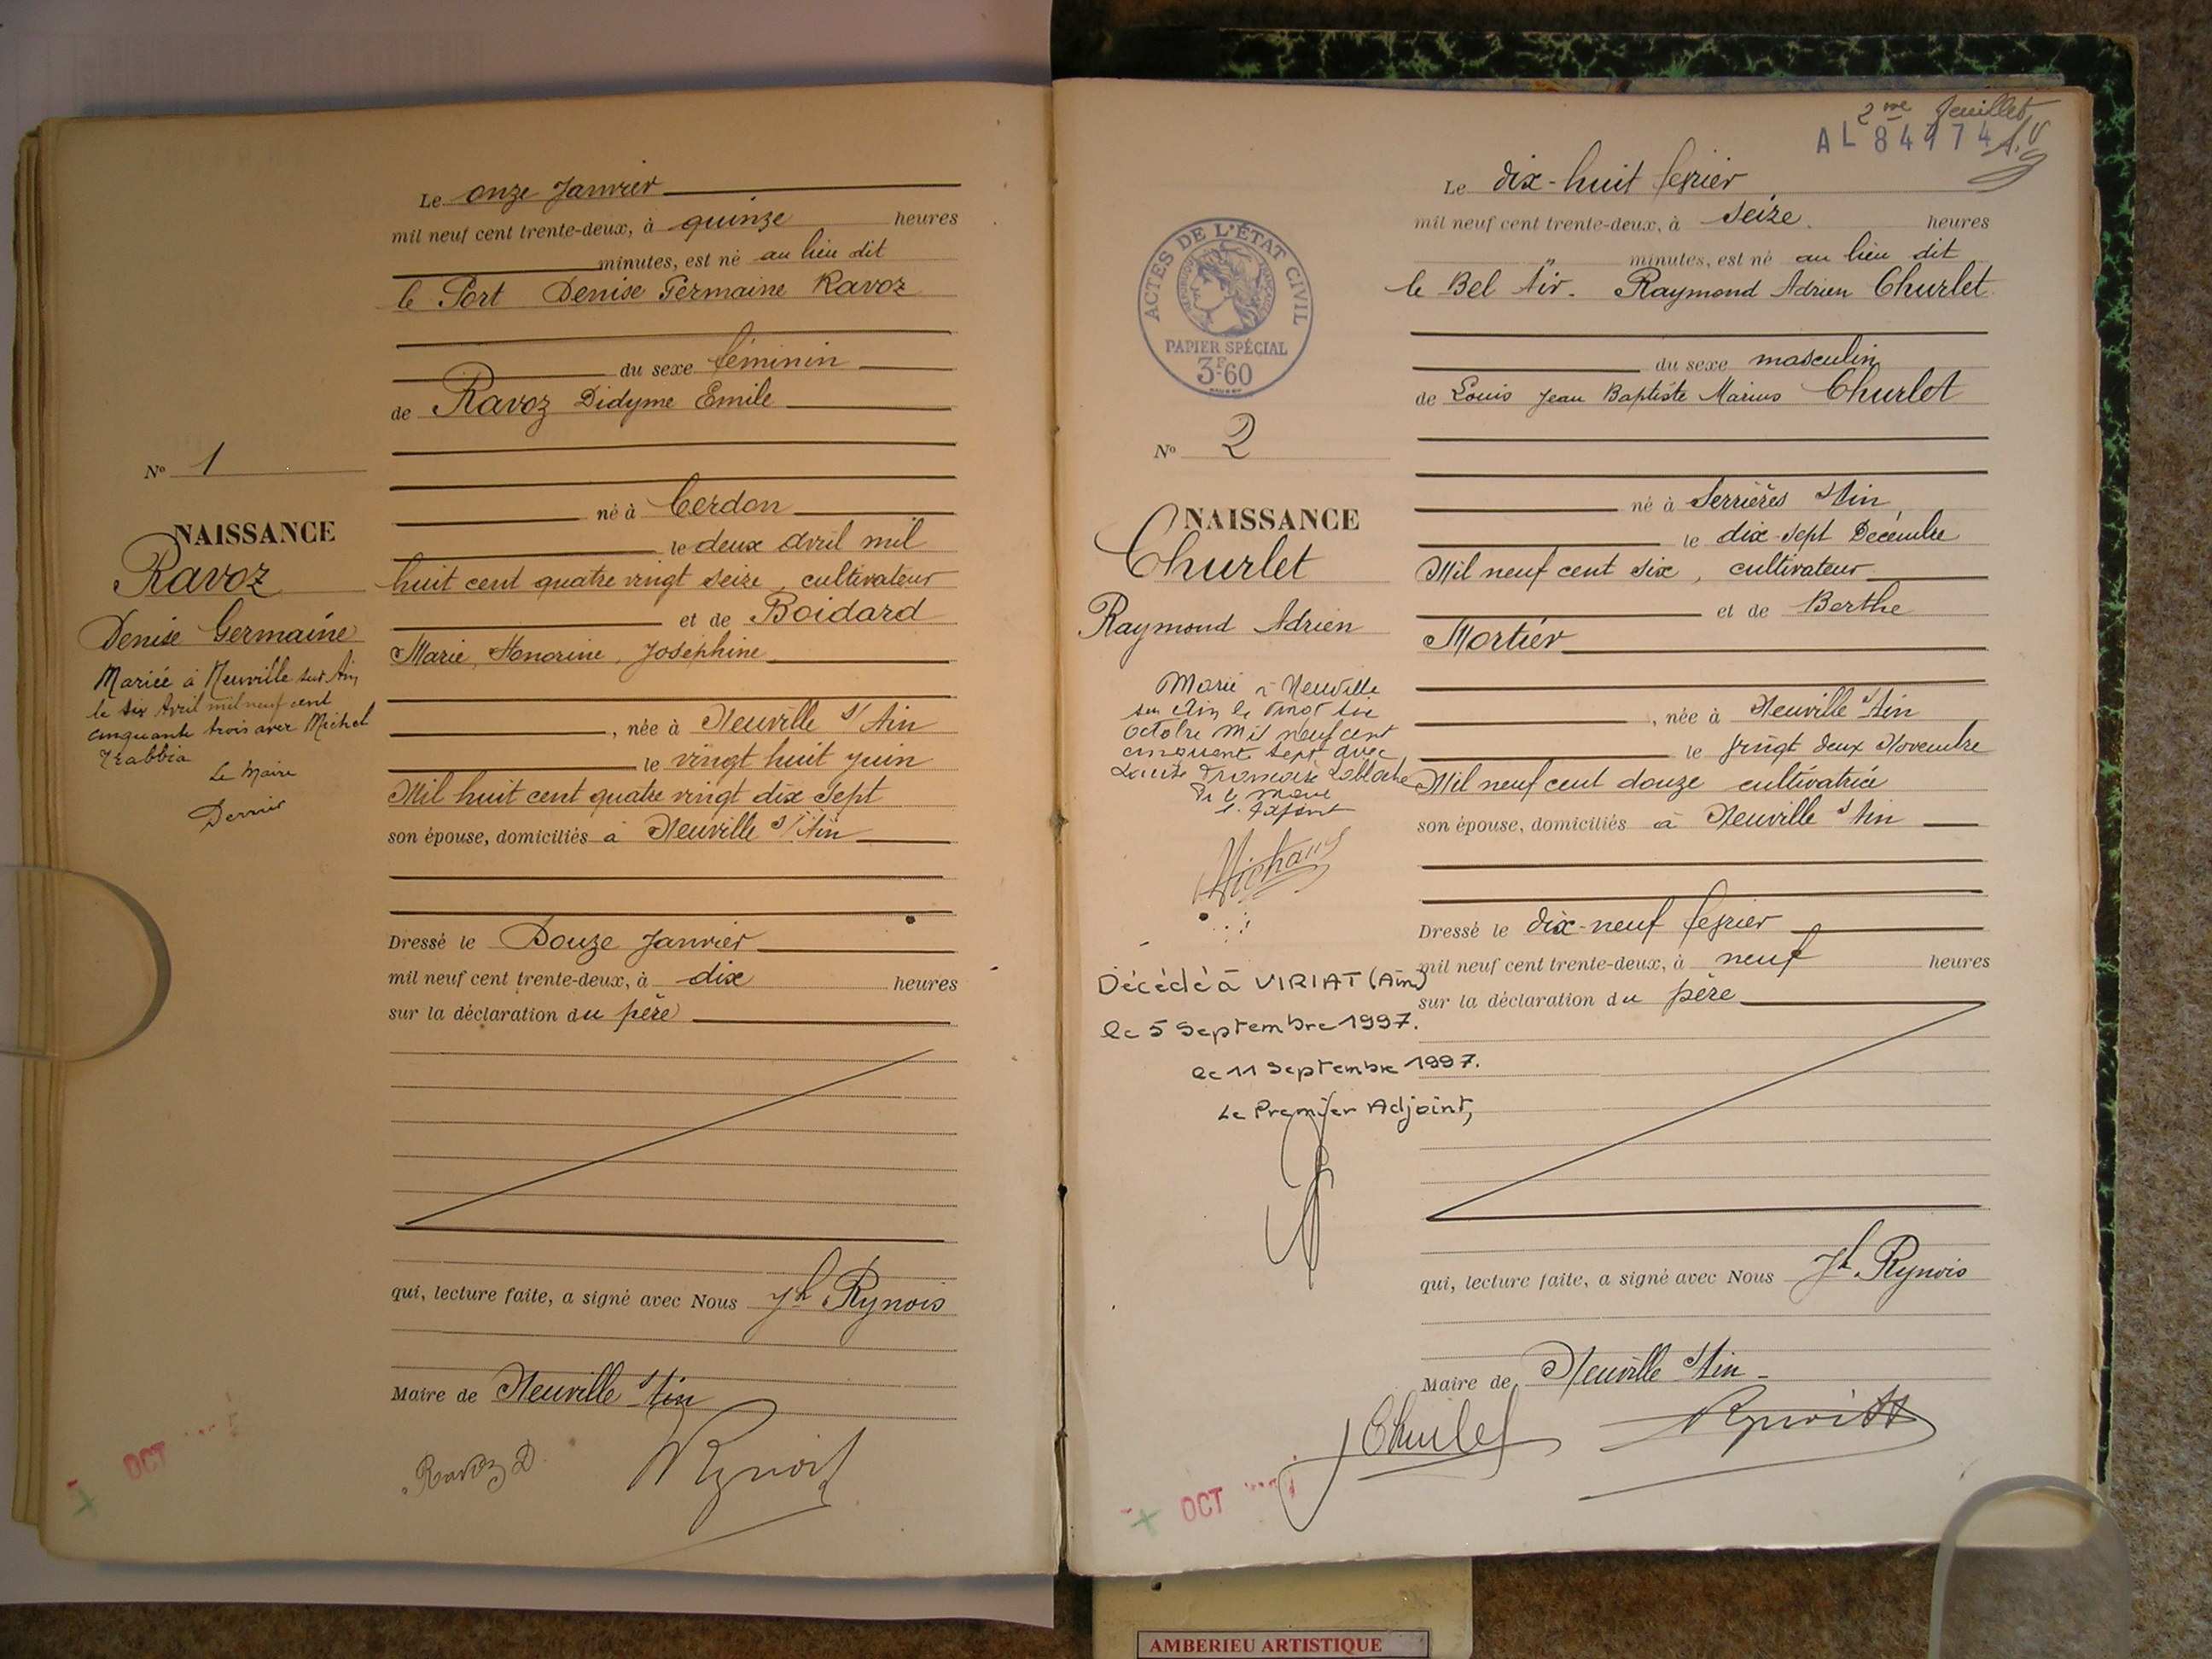 Le onze Janvier
mil neuf cent trente-deux, à quinze heures
minutes, est né au lieu dit
le Port Denise Germaine Ravoz
du sexe féminin
de Ravoz Didyme Emile
né à Cerdon
le deux avril mil
huit cent quatre vingt seize, cultivateur
et de Boidard
Marie, Honorine, Joséphine
, née à Neuville s/ Ain
le vingt huit Juin
Mil huit cent quatre vingt dix sept
son épouse, domiciliés à Neuville s/ Ain
Dressé le Douze Janvier
mil neuf cent trente-deux, à dix heures
sur la déclaration du père
qui, lecture faite, a signé avec Nous Jh Rynois
Maire de Neuville s/ Ain
Ravoz D
No 1
NAISSANCE
Ravoz
Denise Germaine
Mariée à Neuville sur Ain
le six Avril mil neuf cent
cinquante trois avec Michel
Trabbia
Le Maire
OCT
2me feuillet
Le dix-huit février
mil neuf cent trente-deux, à seize heures
minutes, est né au lieu dit
le Bel Air. Raymond Adrien Churlet
du sexe masculin
de Louis Jean Baptiste Marius Churlet
né à Serrières s/ Ain
le dix-sept Décembre
Mil neuf cent six, cultivateur
et de Berthe
Mortier
, née à Neuville s/ Ain
le vingt deux Novembre
Mil neuf cent douze cultivatrice
son épouse, domiciliés à Neuville s/ Ain
Dressé le dix-neuf février
mil neuf cent trente-deux, à neuf heures
sur la déclaration du père
qui, lecture faite, a signé avec Nous Jh Rynois
Maire de Neuville s/ Ain
Churlet
ACTES DE L'ÉTAT CIVIL
PAPIER SPÉCIAL
3F60
No 2
NAISSANCE
Churlet
Raymond Adrien
Marié à Neuville
sur Ain le vingt six
octobre mil neuf cent
cinquante sept avec
Louise Françoise
Décédé à VIRIAT (Ain)
le 5 Septembre 1997.
le 11 Septembre 1997.
Le Premier Adjoint,
OCT
AMBERIEU ARTISTIQUE